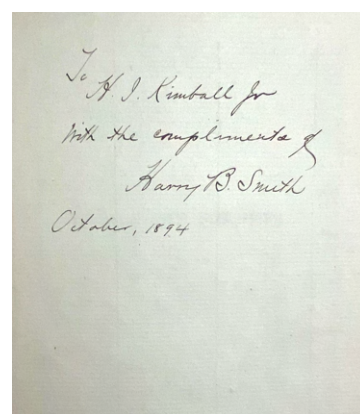 To
H. I. Kimball Jr
With the compliments of
Harry B. Smith
October, 1894